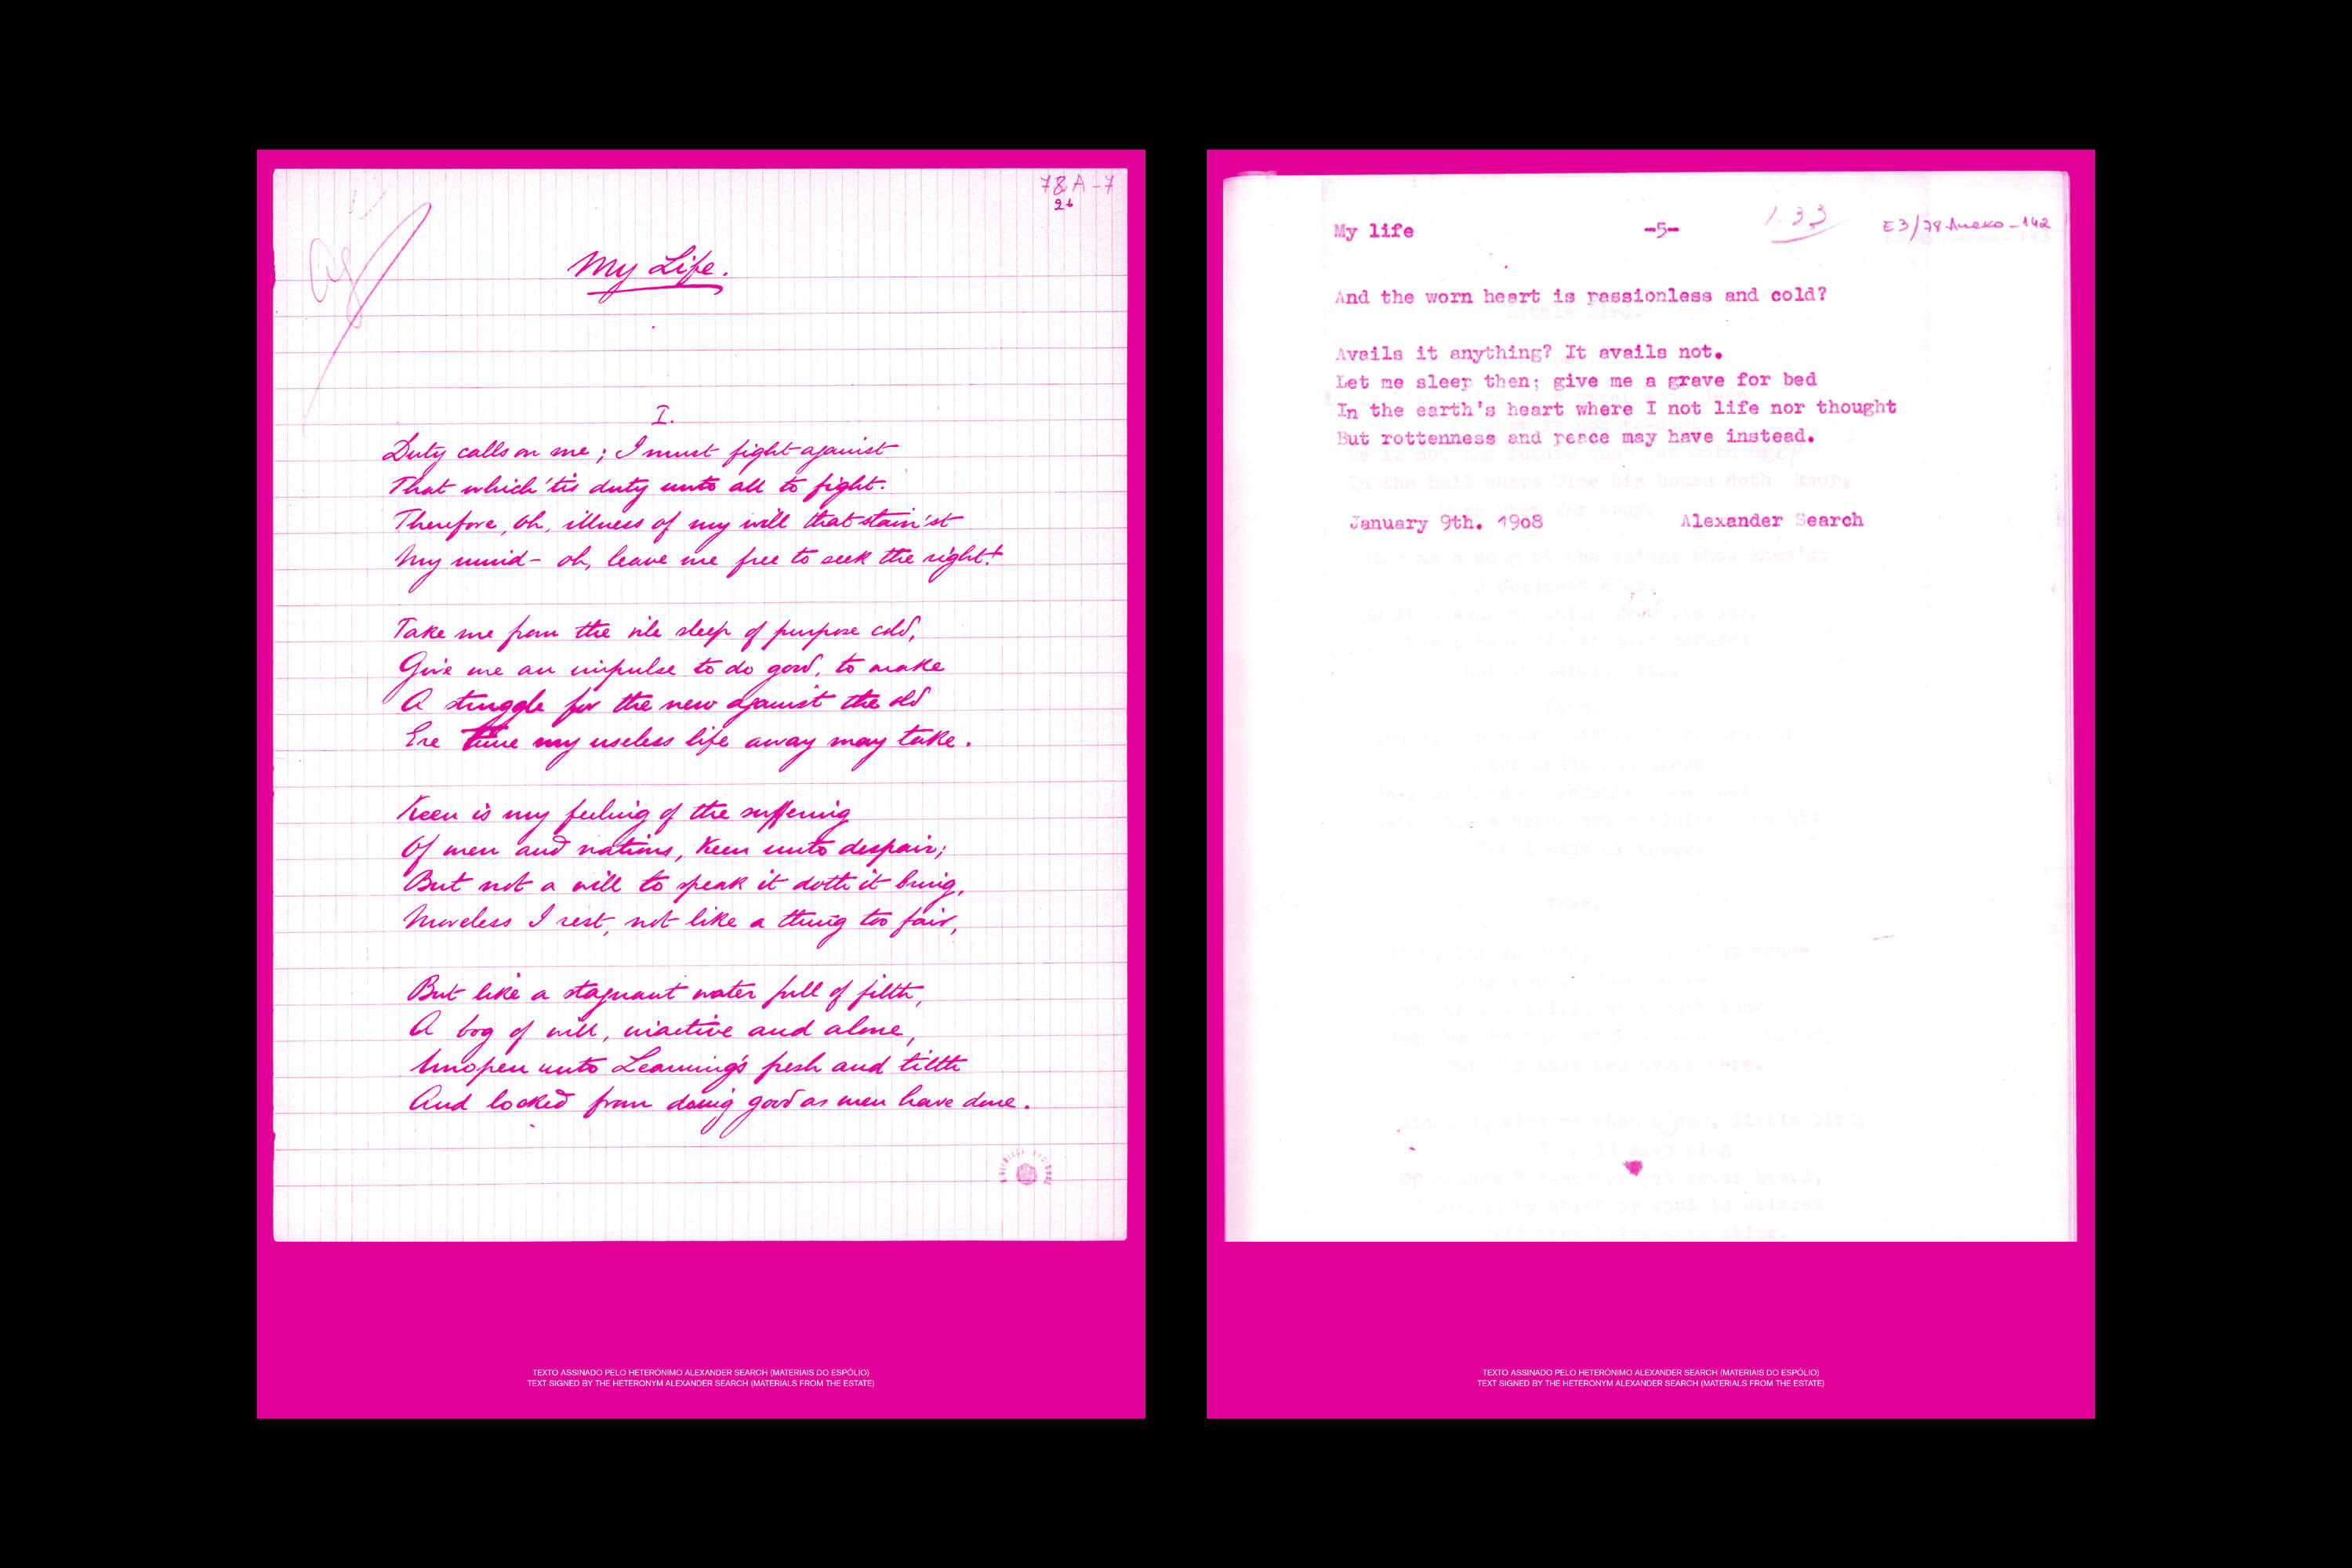 78A-7
26
My Life.
I.
Duty calls on me; I must fight against
That which 'tis duty unto all to fight.
Therefore, oh, illness of my will that stain'st
My mind - oh, leave me free to seek the right!
Take me from the vile sleep of purpose cold,
Give me an impulse to do good, to make
A struggle for the new against the old
Ere time my useless life away may take.
Keen is my feeling of the suffering
Of men and nations, keen unto despair;
But not a will to speak it doth it bring,
Moveless I rest, not like a thing too fair,
But like a stagnant water full of filth,
A bog of will, inactive and alone,
Unopen unto Learning's fresh and tilth
And locked from doing good as men have done.
TEXTO ASSINADO PELO HETERÓNIMO ALEXANDER SEARCH (MATERIAIS DO ESPÓLIO)
TEXT SIGNED BY THE HETERONYM ALEXANDER SEARCH (MATERIALS FROM THE ESTATE)
My life -5- 133 E3/78 Anexo-142
And the worn heart is passionless and cold?
Avails it anything? It avails not.
Let me sleep then; give me a grave for bed
In the earth's heart where I not life nor thought
But rottenness and peace may have instead.
January 9th. 1908 Alexander Search
TEXTO ASSINADO PELO HETERÓNIMO ALEXANDER SEARCH (MATERIAIS DO ESPÓLIO)
TEXT SIGNED BY THE HETERONYM ALEXANDER SEARCH (MATERIALS FROM THE ESTATE)